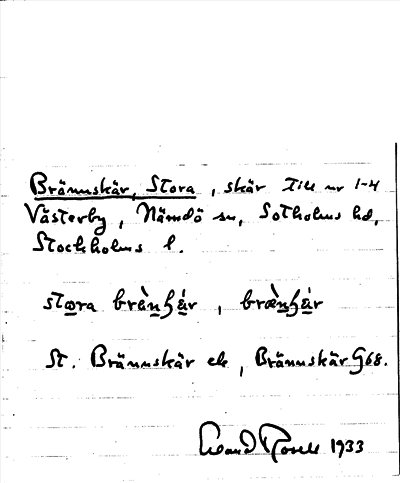 Brännskär, Stora, skär till nr 1-4
Västerby, Nämdö sn, Sotholms hd,
Stockholms l.
stora brä̀nʃä́r, bræ̀nʃä́r
St. Brännskär ek, Brännskär G68.
1933